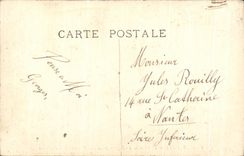 CARTE POSTALE
Monsieur
Jules Rouilly
14 rue Ste Catherine
à
Nantes
Loire Inférieure